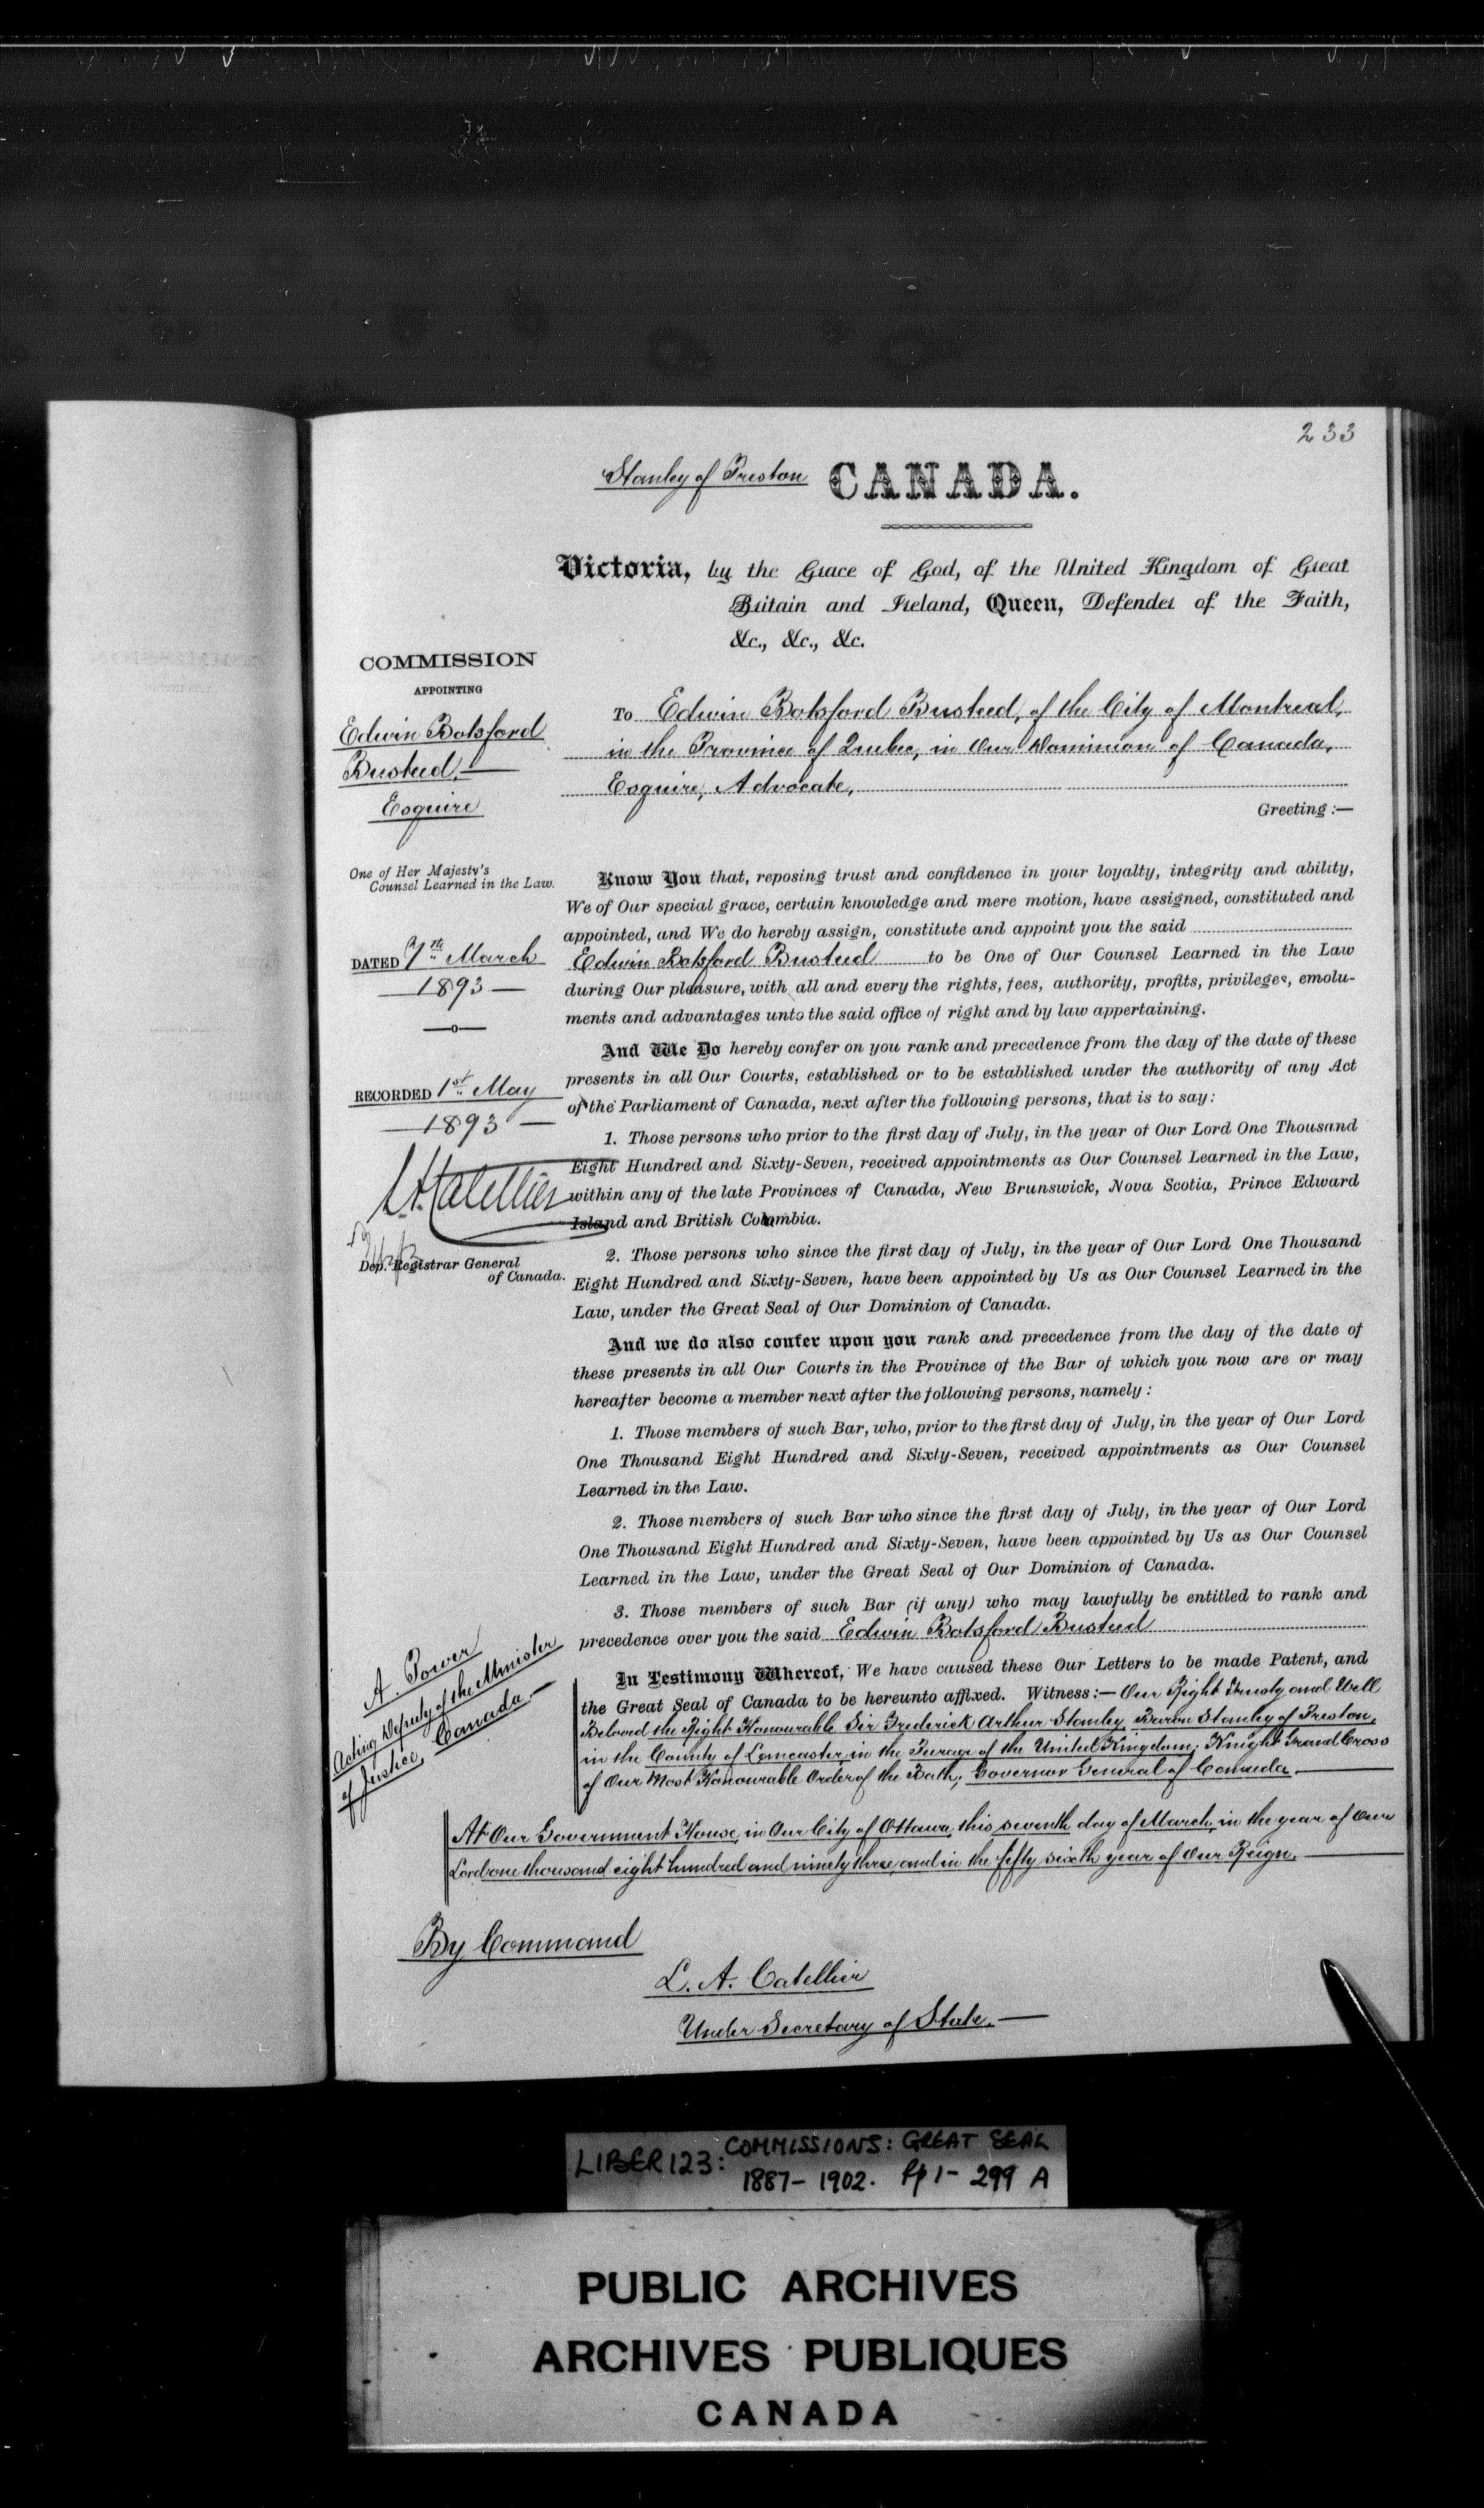 233
Stanley of Preston CANADA.
Victoria, by the Grace of God, of the United Kingdom of Great
Britain and Ireland, Queen, Defender of the Faith,
&c., &c., &c.
COMMISSION
APPOINTING
Edwin Botsford
Busteed,—
Esquire
One of Her Majesty's
Counsel Learned in the Law.
DATED 7th March
1893—
—o—
RECORDED 1st May
1893—
L. A. Catellier
Dep. Registrar General
of Canada.
To Edwin Botsford Busteed, of the City of Montreal,
in the Province of Quebec, in Our Dominion of Canada,
Esquire, Advocate,
Greeting:—
Know You that, reposing trust and confidence in your loyalty, integrity and ability,
We of Our special grace, certain knowledge and mere motion, have assigned, constituted and
appointed, and We do hereby assign, constitute and appoint you the said
Edwin Botsford Busteed to be One of Our Counsel Learned in the Law
during Our pleasure, with all and every the rights, fees, authority, profits, privileges, emolu-
ments and advantages unto the said office of right and by law appertaining.
And We Do hereby confer on you rank and precedence from the day of the date of these
presents in all Our Courts, established or to be established under the authority of any Act
of the Parliament of Canada, next after the following persons, that is to say:
1. Those persons who prior to the first day of July, in the year of Our Lord One Thousand
Eight Hundred and Sixty-Seven, received appointments as Our Counsel Learned in the Law,
within any of the late Provinces of Canada, New Brunswick, Nova Scotia, Prince Edward
Island and British Columbia.
2. Those persons who since the first day of July, in the year of Our Lord One Thousand
Eight Hundred and Sixty-Seven, have been appointed by Us as Our Counsel Learned in the
Law, under the Great Seal of Our Dominion of Canada.
And we do also confer upon you rank and precedence from the day of the date of
these presents in all Our Courts in the Province of the Bar of which you now are or may
hereafter become a member next after the following persons, namely:
1. Those members of such Bar, who, prior to the first day of July, in the year of Our Lord
One Thousand Eight Hundred and Sixty-Seven, received appointments as Our Counsel
Learned in the Law.
2. Those members of such Bar who since the first day of July, in the year of Our Lord
One Thousand Eight Hundred and Sixty-Seven, have been appointed by Us as Our Counsel
Learned in the Law, under the Great Seal of Our Dominion of Canada.
3. Those members of such Bar (if any) who may lawfully be entitled to rank and
precedence over you the said Edwin Botsford Busteed
A. Power
Acting Deputy of the Minister
of Justice, Canada.—
In Testimony Whereof, We have caused these Our Letters to be made Patent, and
the Great Seal of Canada to be hereunto affixed. Witness:—Our Right Trusty and Well
Beloved the Right Honourable Sir Frederick Arthur Stanley, Baron Stanley of Preston,
in the County of Lancaster, in the Peerage of the United Kingdom; Knight Grand Cross
of Our Most Honourable Order of the Bath; Governor General of Canada.
At Our Government House, in Our City of Ottawa, this seventh day of March, in the year of Our
Lord one thousand eight hundred and ninety three, and in the fifty sixth year of Our Reign.
By Command
L. A. Catellier
Under Secretary of State.—
LIBER 123: COMMISSIONS: GREAT SEAL
1887-1902. Pp 1-299 A
PUBLIC ARCHIVES
ARCHIVES PUBLIQUES
CANADA